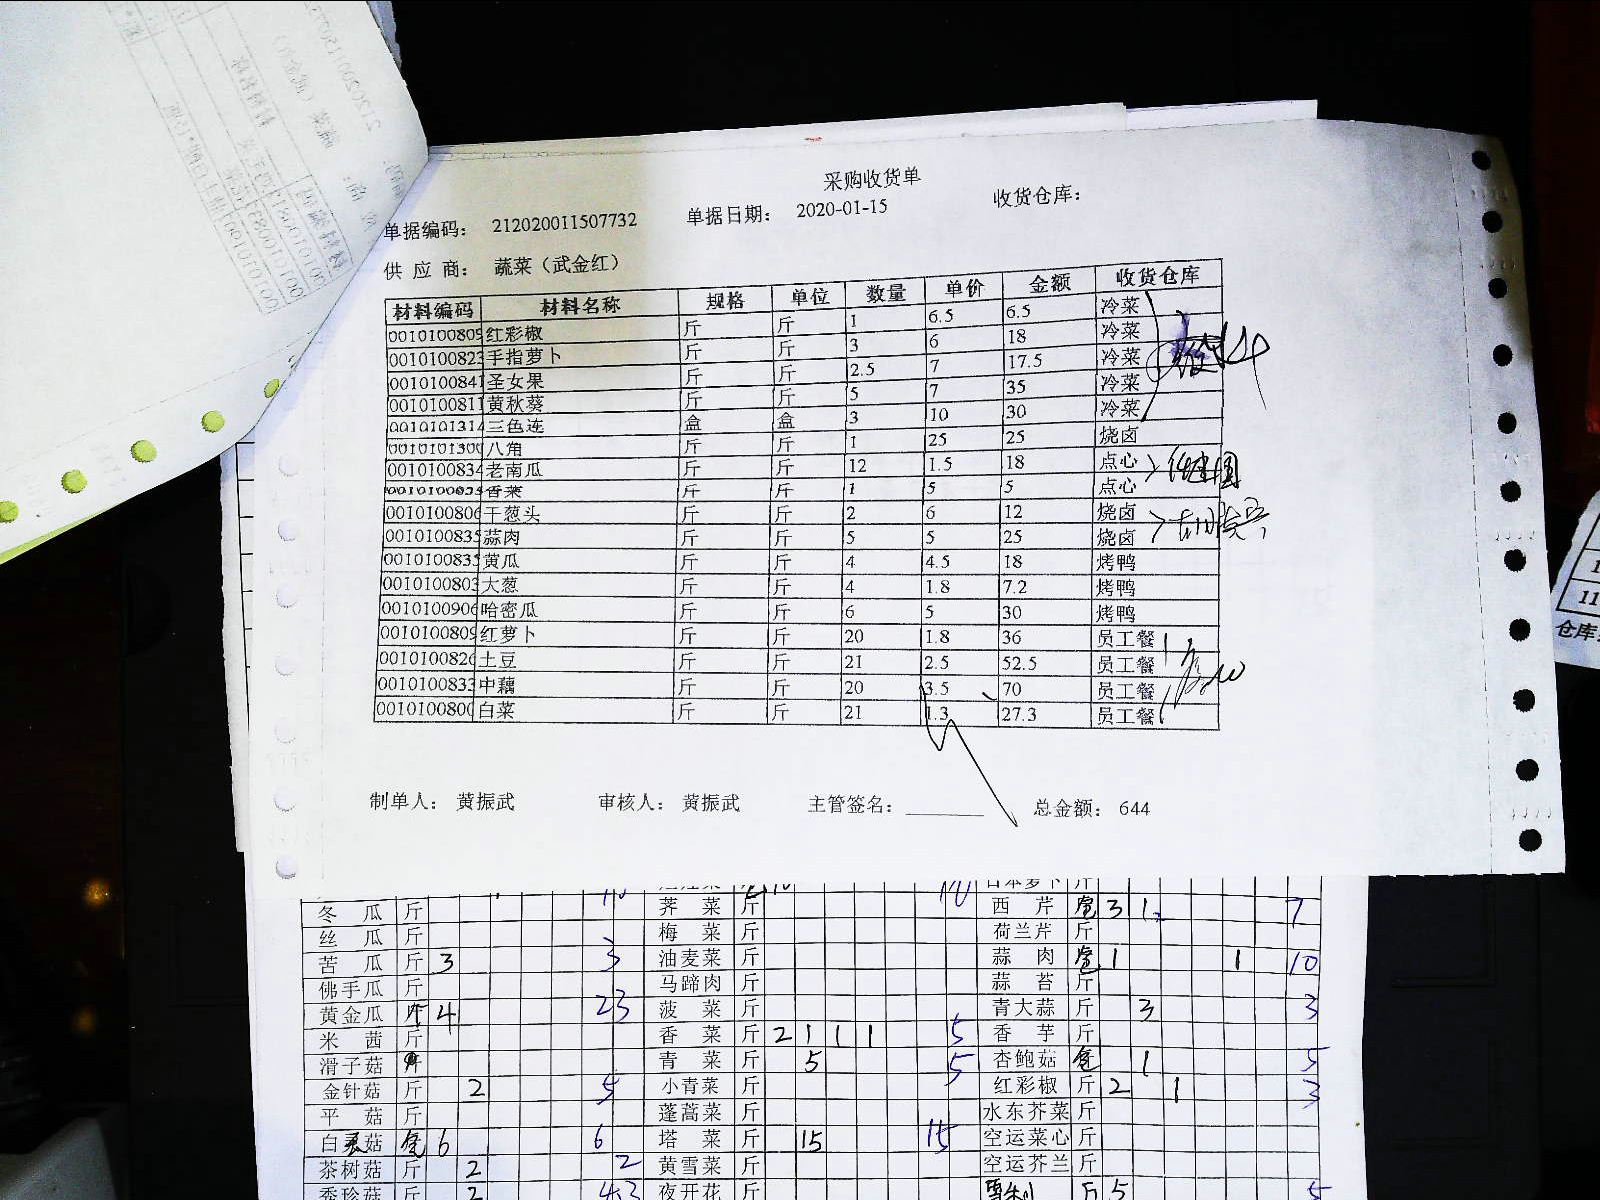 采购收货单
单据编码： 212020011507732 单据日期： 2020-01-15 收货仓库：
供 应 商： 蔬菜（武金红）
材料编码 材料名称 规格 单位 数量 单价 金额 收货仓库
0010100809 红彩椒 斤 斤 1 6.5 6.5 冷菜
0010100823 手指萝卜 斤 斤 3 6 18 冷菜
0010100841 圣女果 斤 斤 2.5 7 17.5 冷菜
0010100811 黄秋葵 斤 斤 5 7 35 冷菜
0010101314 三色连 盒 盒 3 10 30 冷菜
0010101300 八角 斤 斤 1 25 25 烧卤
0010100834 老南瓜 斤 斤 12 1.5 18 点心
香菜 斤 斤 1 5 5 点心
0010100806 干葱头 斤 斤 2 6 12 烧卤
0010100835 蒜肉 斤 斤 5 5 25 烧卤
0010100835 黄瓜 斤 斤 4 4.5 18 烤鸭
0010100803 大葱 斤 斤 4 1.8 7.2 烤鸭
0010100906 哈密瓜 斤 斤 6 5 30 烤鸭
0010100809 红萝卜 斤 斤 20 1.8 36 员工餐
0010100826 土豆 斤 斤 21 2.5 52.5 员工餐
0010100833 中藕 斤 斤 20 3.5 70 员工餐
0010100800 白菜 斤 斤 21 1.3 27.3 员工餐
制单人： 黄振武 审核人： 黄振武 主管签名： 总金额： 644
冬 瓜 斤 荠 菜 斤 西 芹 3 1 7
丝 瓜 斤 梅 菜 斤 荷兰芹 斤
苦 瓜 斤 3 3 油麦菜 斤 蒜 肉 1 1 10
佛手瓜 斤 马蹄肉 斤 蒜 苔 斤
黄金瓜 斤 4 23 菠 菜 斤 青大蒜 斤 3 3
米 茜 斤 香 菜 斤 2 1 1 1 5 香 芋 斤
滑子菇 青 菜 斤 5 5 杏鲍菇 1 5
金针菇 斤 2 5 小青菜 斤 红彩椒 斤 2 1 3
平 菇 斤 蓬蒿菜 斤 水东芥菜 斤
白灵菇 6 6 塔 菜 斤 15 15 空运菜心 斤
茶树菇 斤 2 2 黄雪菜 斤 空运芥兰 斤
秀珍菇 斤 2 夜开花 斤 斤 5 5